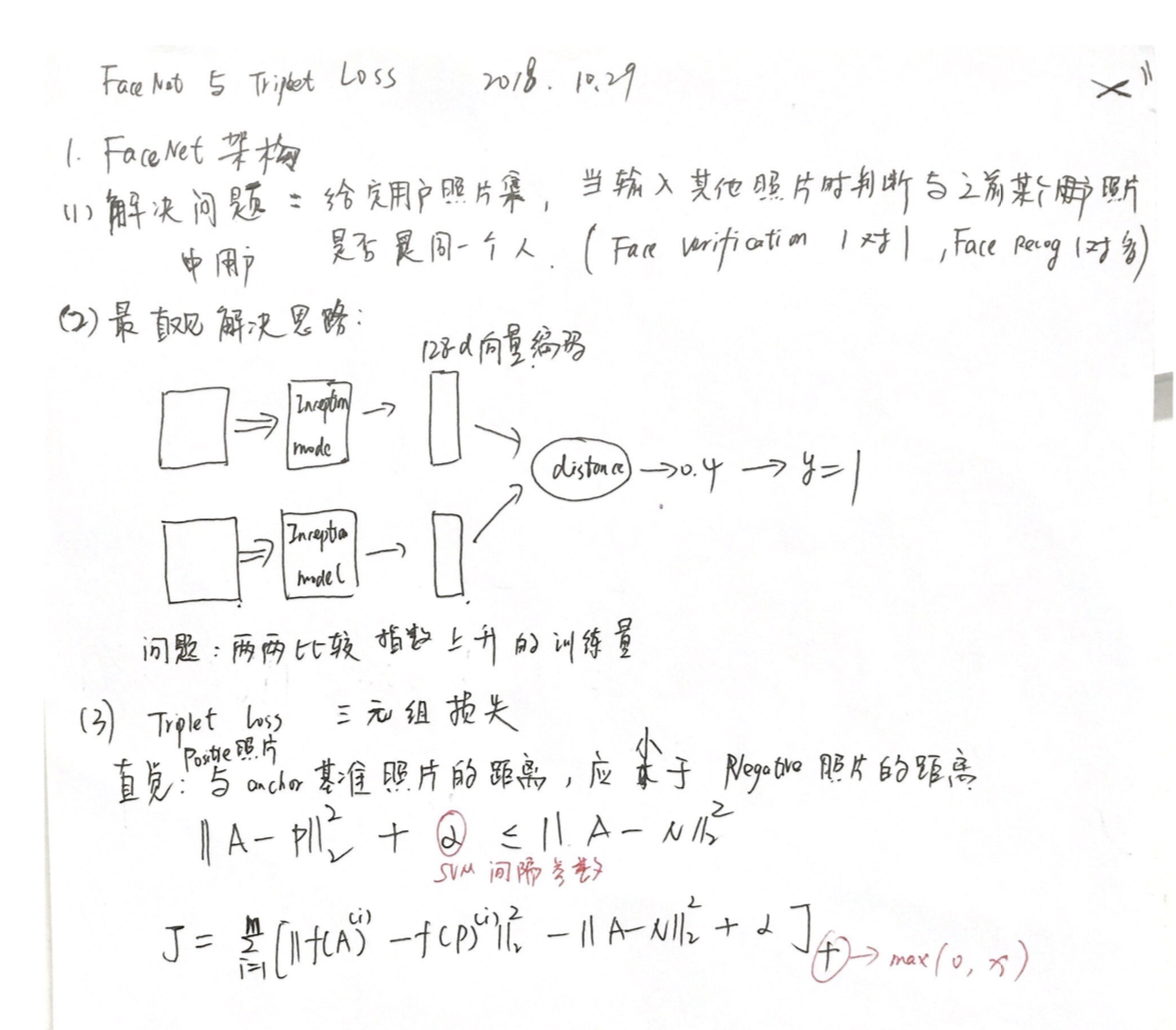 FaceNet 与 Triplet Loss 2018. 10.29
1. FaceNet 架构
(1) 解决问题：给定用户照片集，当输入其他照片时判断与之前某个用户照片
中用户 是否是同一个人. (Face verification 1对1, Face Recog 1对多)
(2) 最直观解决思路:
128d 向量编码
Inception
mode
distance → 0.4 → y=1
Inception
model
问题：两两比较 指数上升的训练量
(3) Triplet loss 三元组损失
Postie照片
直觉：与 anchor 基准照片的距离，应小于 Negative 照片的距离
||A-P||₂² + α ≤ ||A-N||₂²
SVM 间隔参数
J = Σᵢ₌₁ᵐ [||f(A)⁽ⁱ⁾ - f(P)⁽ⁱ⁾||₂² - ||A-N||₂² + α]₊ → max(0, x)